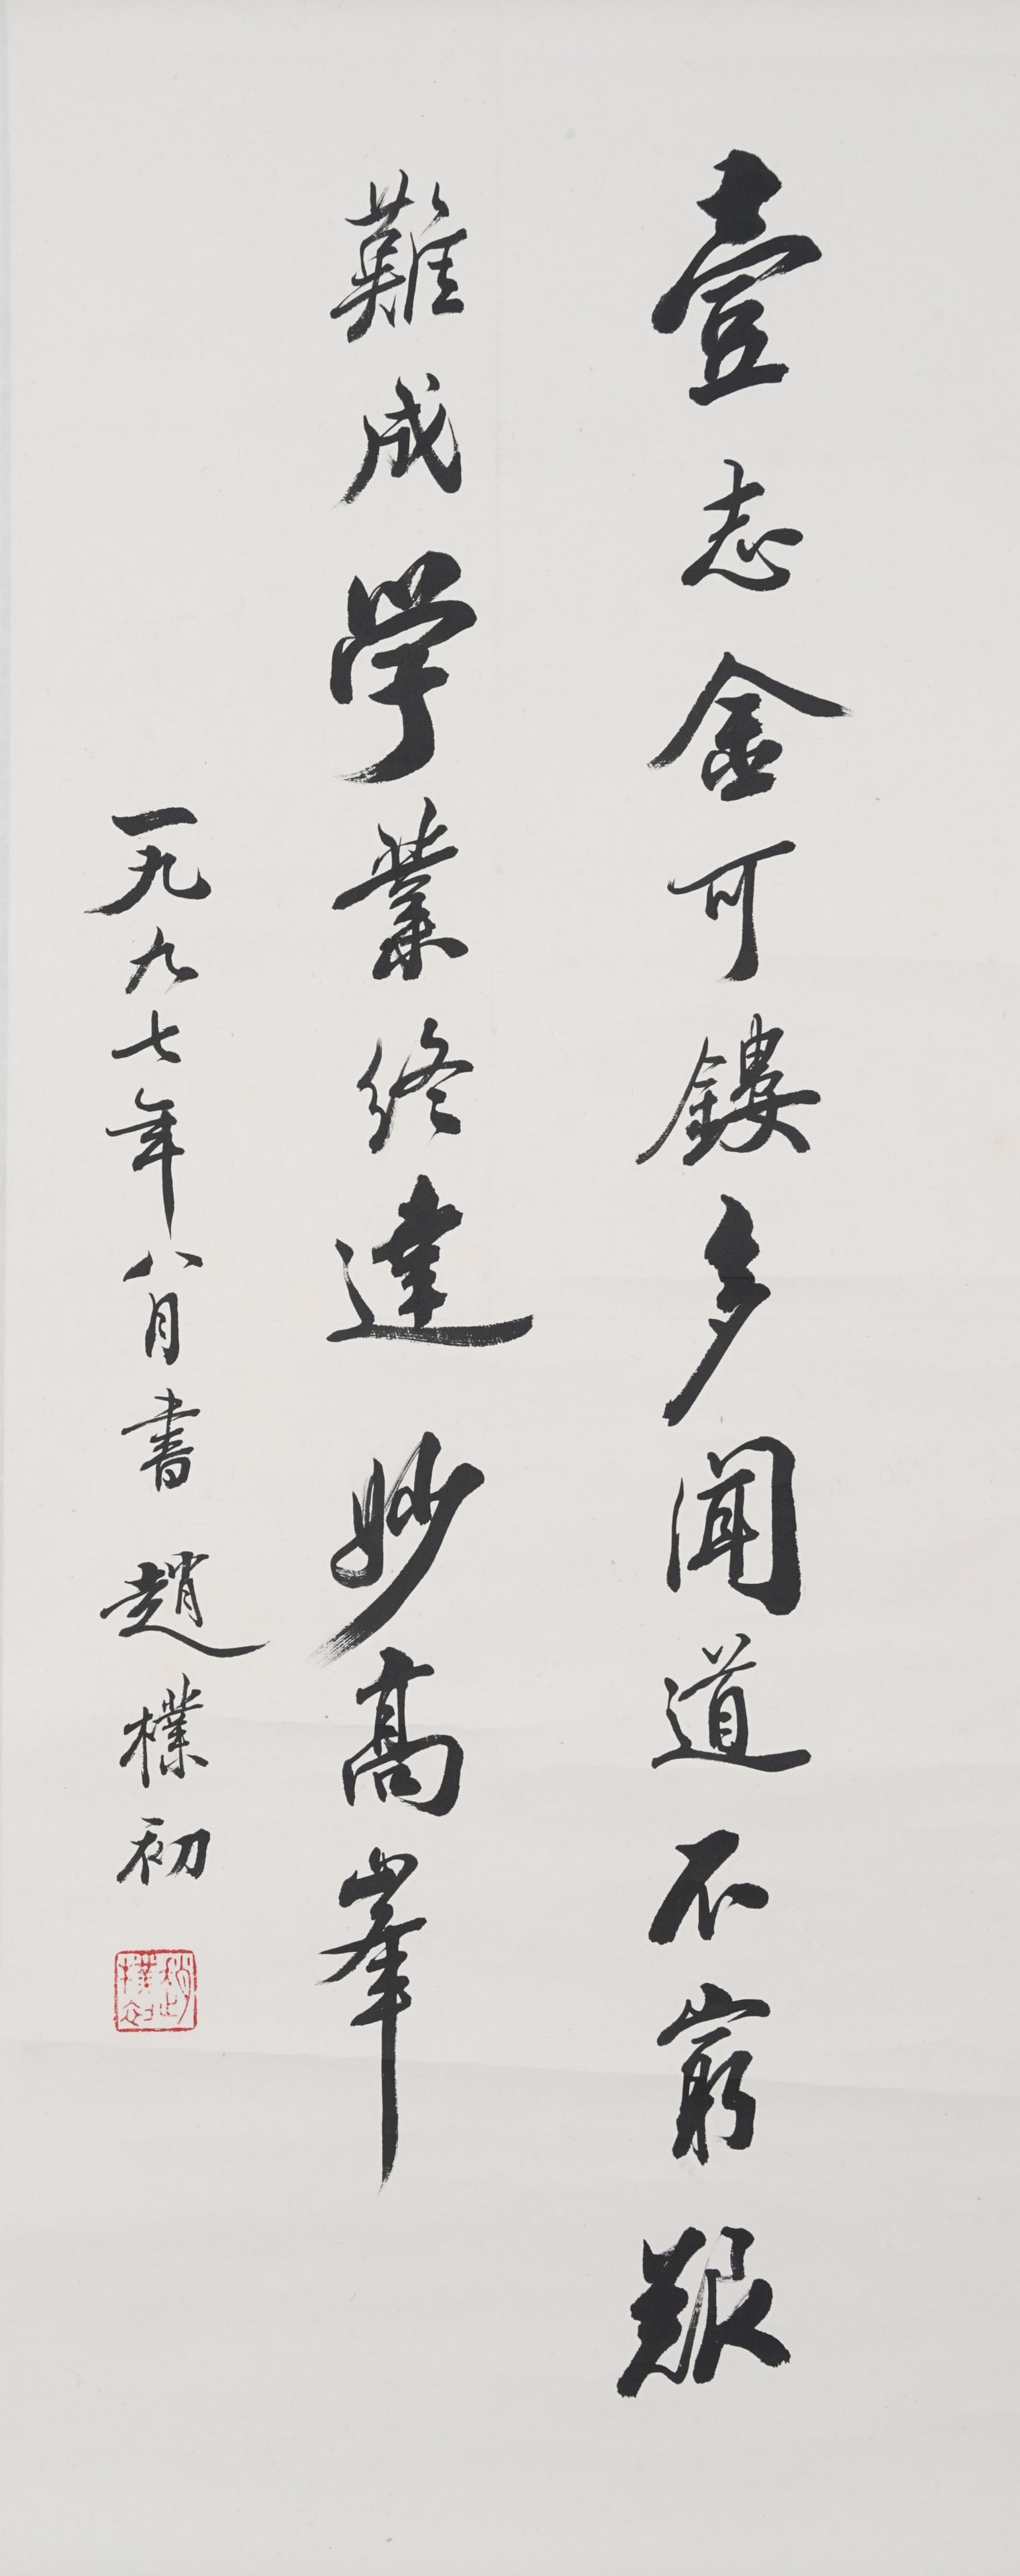 壹志金可鏤多聞道不窮艱
難成學業終達妙高峯
一九九七年八月書 趙樸初
趙樸初